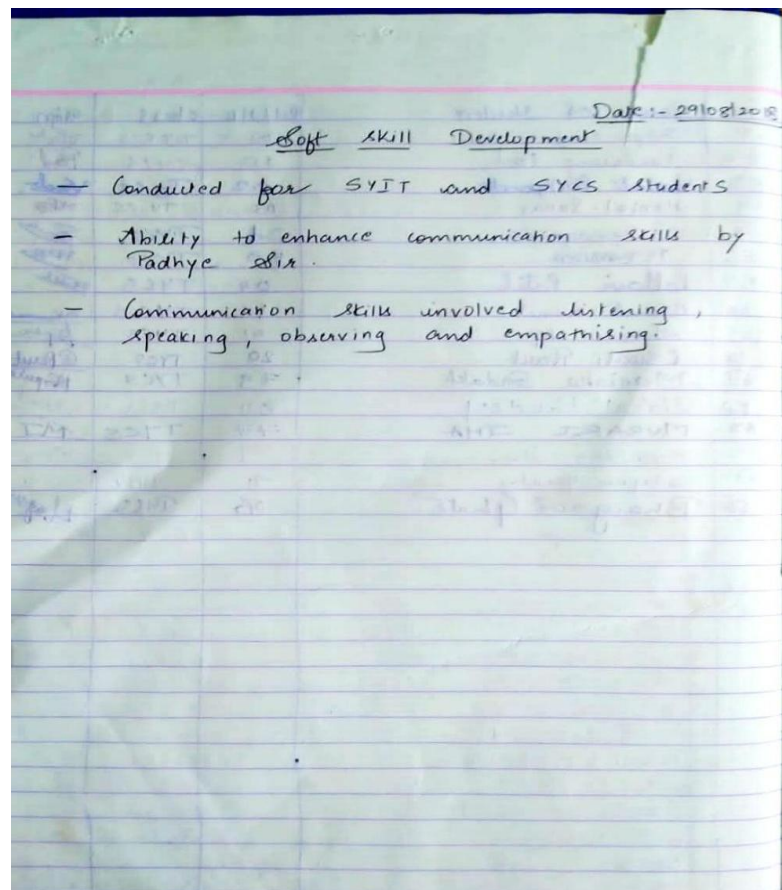 Date :- 29/08/2018
Soft Skill Development
— Conducted for SYIT and SYCS students
— Ability to enhance communication skills by
Padhye Sir.
— Communication skills involved listening,
speaking, observing and empathising.